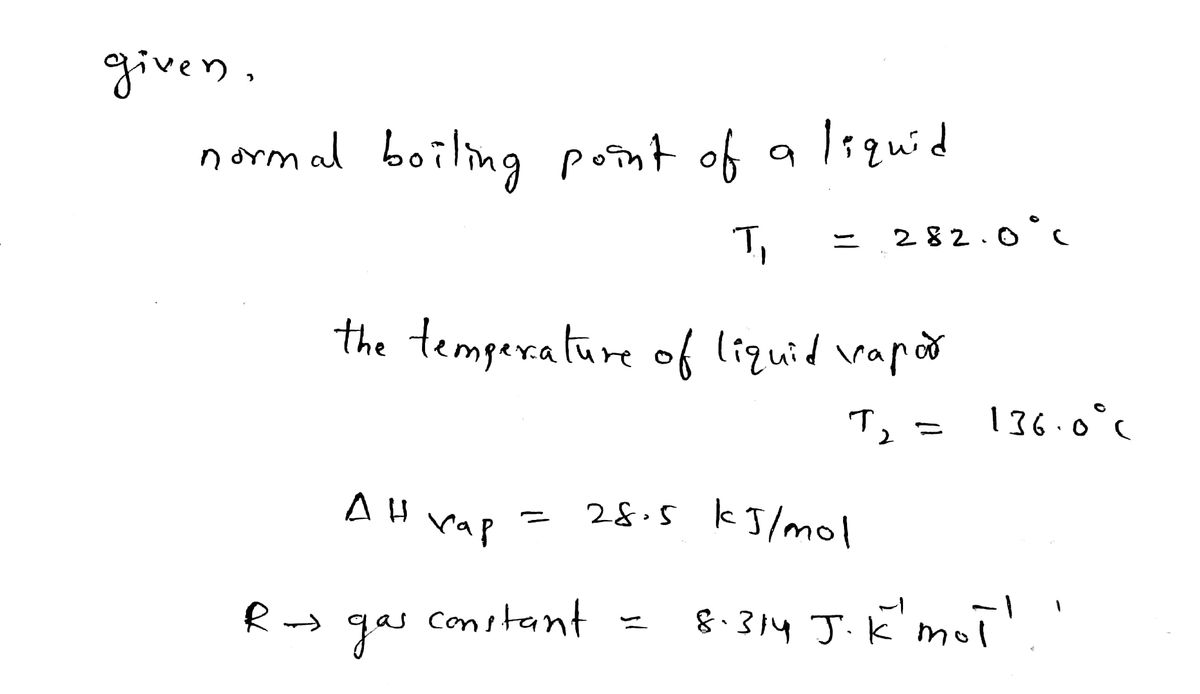 given,
normal boiling point of a liquid
T₁ = 282.0°C
the temperature of liquid vapor
T₂ = 136.0°C
ΔH vap = 28.5 kJ/mol
R → gas constant = 8.314 J.K⁻¹ mol⁻¹